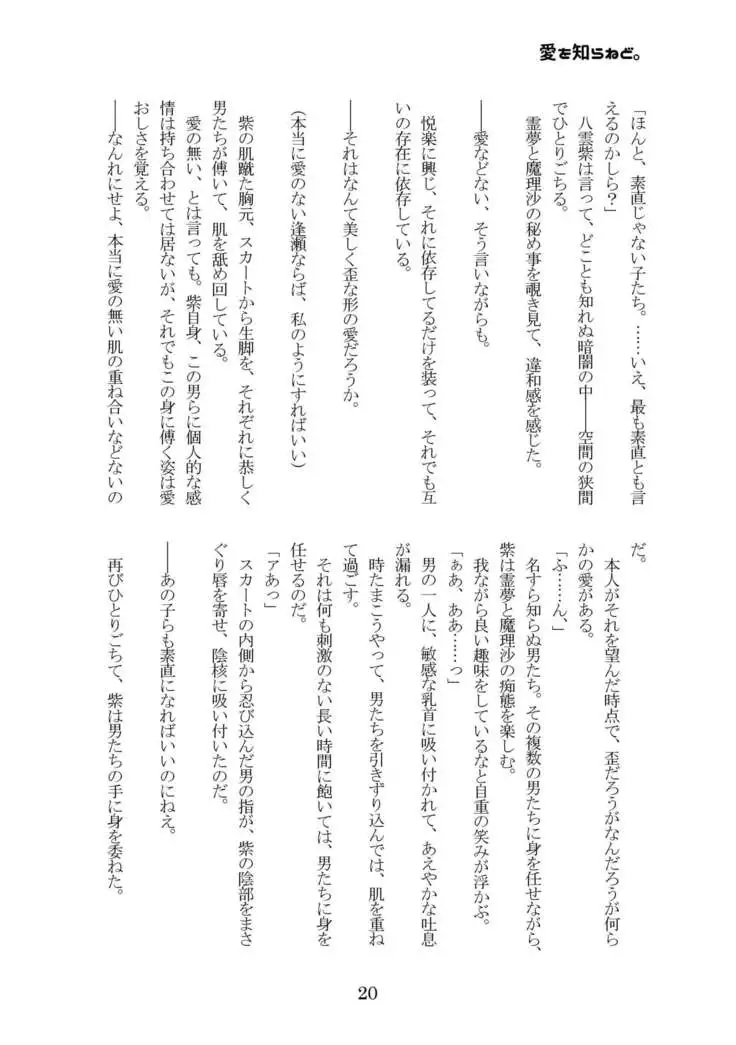 愛を知らねど。
「ほんと、素直じゃない子たち。……いえ、最も素直とも言
えるのかしら？」
八雲紫は言って、どことも知れぬ暗闇の中――空間の狭間
でひとりごちる。
霊夢と魔理沙の秘め事を覗き見て、違和感を感じた。
――愛などない、そう言いながらも。
悦楽に興じ、それに依存してるだけを装って、それでも互
いの存在に依存している。
――それはなんて美しく歪な形の愛だろうか。
（本当に愛のない逢瀬ならば、私のようにすればいい）
紫の肌蹴た胸元、スカートから生脚を、それぞれに恭しく
男たちが傅いて、肌を舐め回している。
愛の無い、とは言っても。紫自身、この男らに個人的な感
情は持ち合わせては居ないが、それでもこの身に傅く姿は愛
おしさを覚える。
――なんれにせよ、本当に愛の無い肌の重ね合いなどないの
だ。
本人がそれを望んだ時点で、歪だろうがなんだろうが何ら
かの愛がある。
「ふ……ん、」
名すら知らぬ男たち。その複数の男たちに身を任せながら、
紫は霊夢と魔理沙の痴態を楽しむ。
我ながら良い趣味をしているなと自重の笑みが浮かぶ。
「ぁあ、ああ……っ」
男の一人に、敏感な乳首に吸い付かれて、あえやかな吐息
が漏れる。
時たまこうやって、男たちを引きずり込んでは、肌を重ね
て過ごす。
それは何も刺激のない長い時間に飽いては、男たちに身を
任せるのだ。
「アあっ」
スカートの内側から忍び込んだ男の指が、紫の陰部をまさ
ぐり唇を寄せ、陰核に吸い付いたのだ。
――あの子らも素直になればいいのにねえ。
再びひとりごちて、紫は男たちの手に身を委ねた。
20